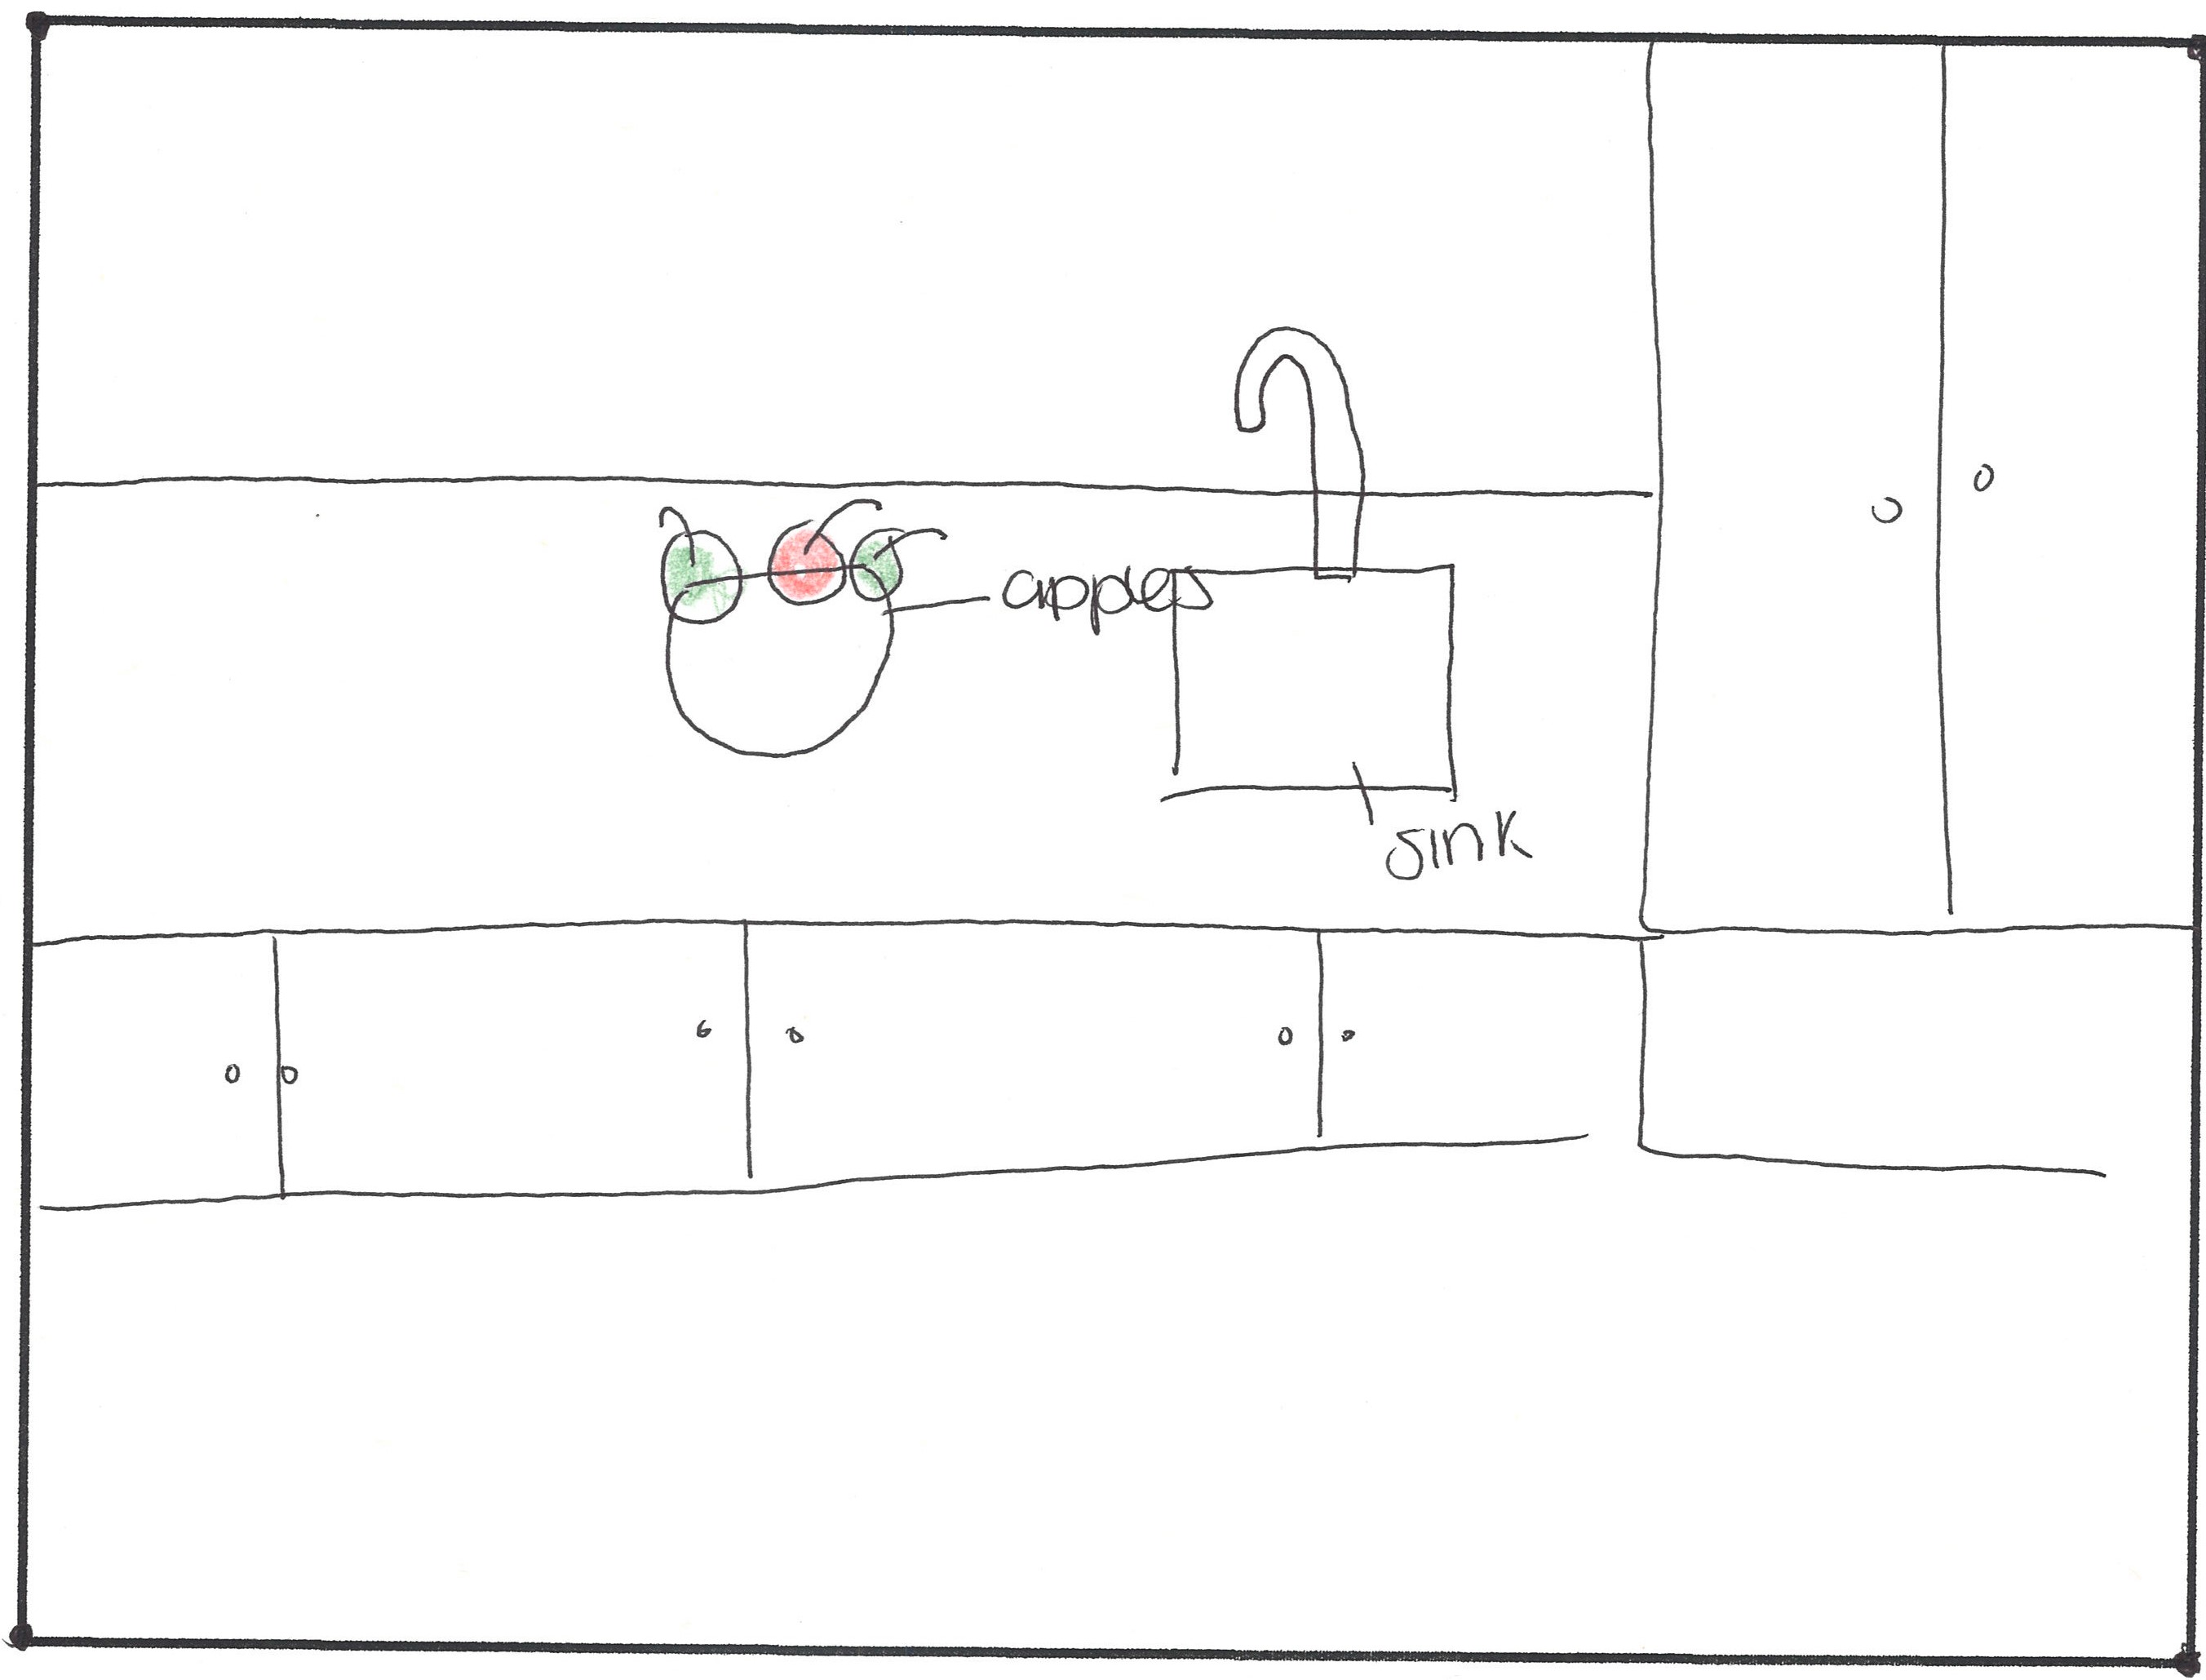 apples
sink